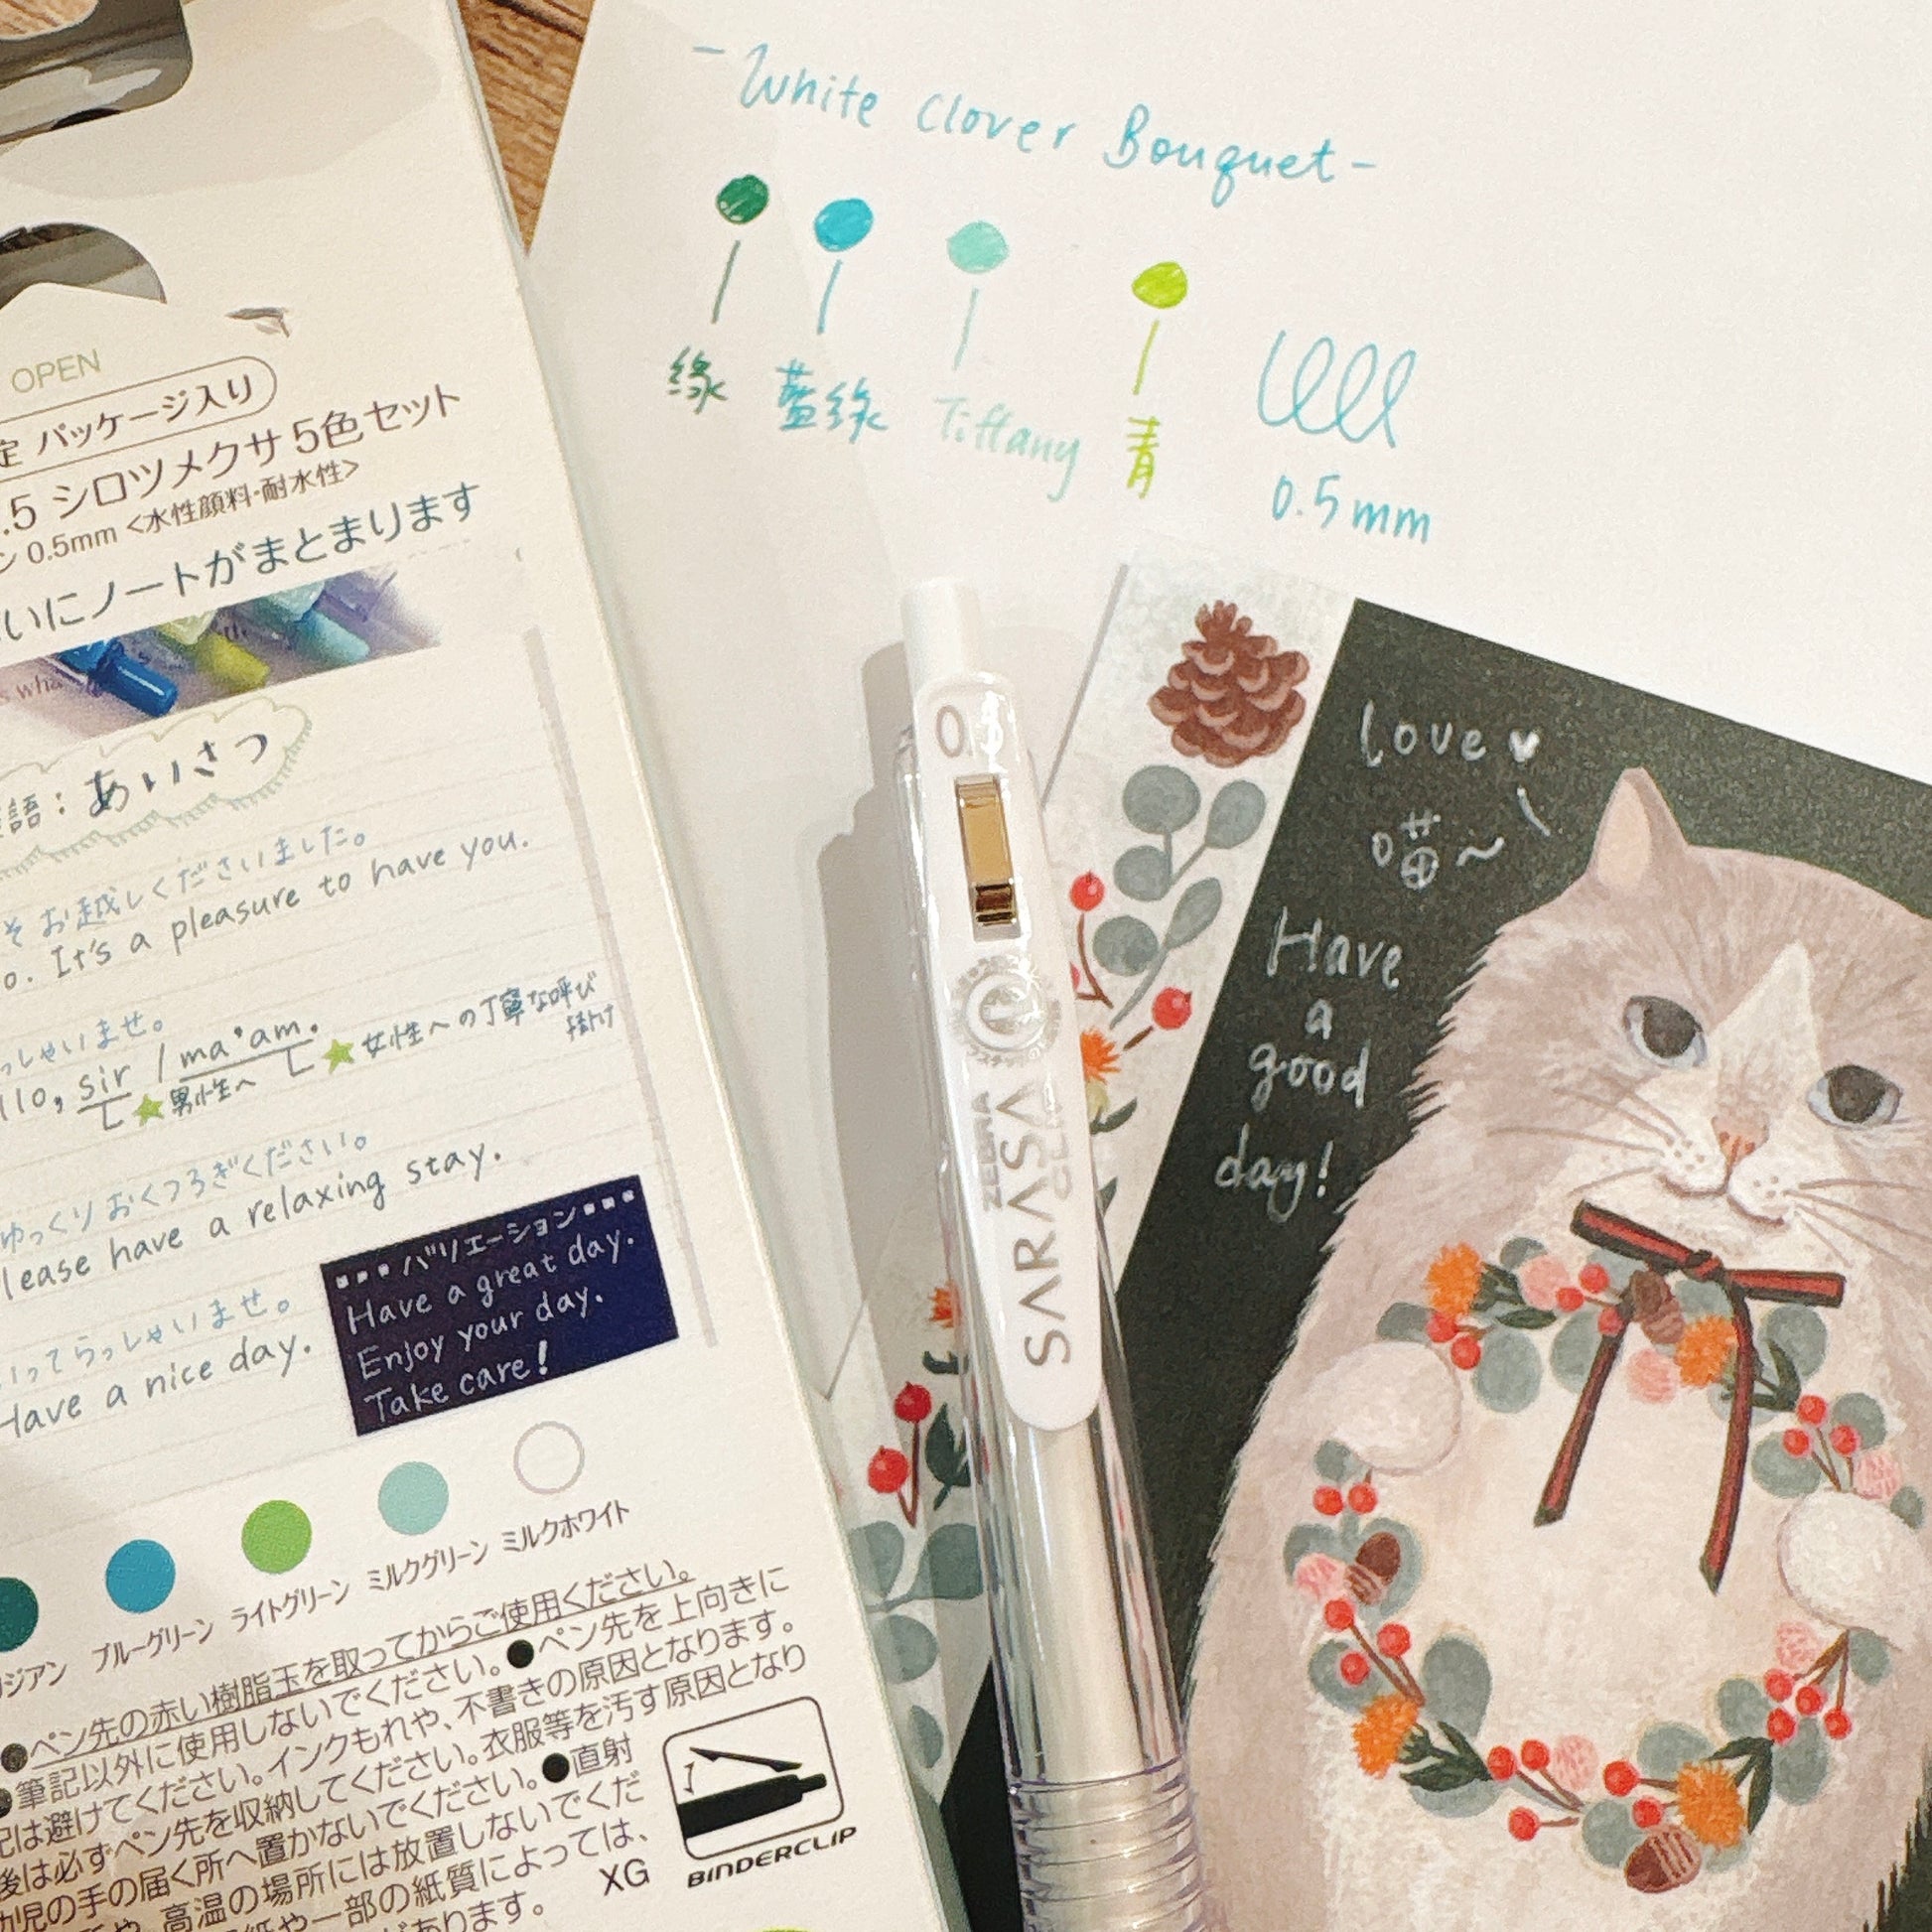 OPEN
パッケージ入り
.5 シロツメクサ 5色セット
0.5mm <水性顔料・耐水性>
いにノートがまとまります
語：あいさつ
そ お越しくださいました。
o. It's a pleasure to have you.
っしゃいませ。
llo, sir / ma'am.
男性へ
女性への丁寧な呼び
掛け
ゆっくりおくつろぎください。
lease have a relaxing stay.
いってらっしゃいませ。
Have a nice day.
バリエーション
Have a great day.
Enjoy your day.
Take care!
ジアン ブルーグリーン ライトグリーン ミルクグリーン ミルクホワイト
●ペン先の赤い樹脂玉を取ってからご使用ください。
●筆記以外に使用しないでください。●ペン先を上向きに
記は避けてください。インクもれや、不書きの原因となります。
後は必ずペン先を収納してください。衣服等を汚す原因となり
幼児の手の届く所へ置かないでください。●直射
高温の場所には放置しないでくだ
紙や一部の紙質によっては、
があります。
XG
BINDERCLIP
-White Clover Bouquet-
緑 藍綠 Tiffany 青
0.5mm
ZEBRA
SARASA
CLIP
love
喵~
Have
a
good
day!